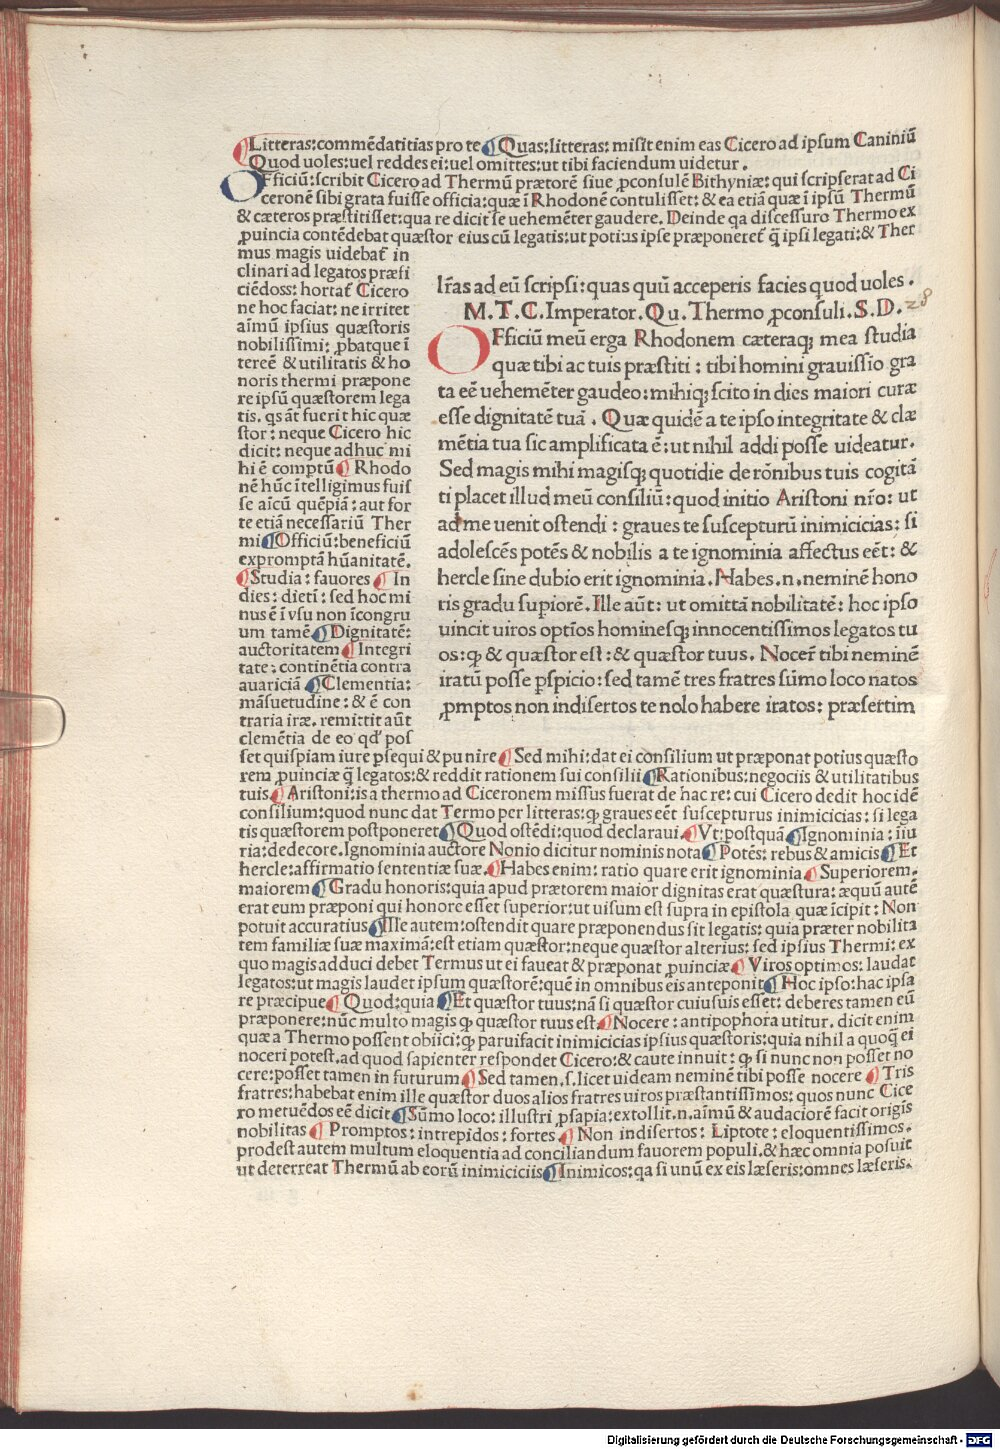 ¶Litteras:commēdatitias pro te ¶Quas:litteras: misit enim eas Cicero ad ipsum Caniniū
Quod uoles:uel reddes ei:uel omittes:ut tibi faciendum uidetur.
OFficiū:scribit Cicero ad Thermū prætorē siue ꝓconsulē Bithyniæ: qui scripserat ad Ci
ceronē sibi grata fuisse officia:quæ ī Rhodonē contulisset: & ea etiā quæ ī ipsū Thermū
& cæteros præstitisset:qua re dicit se uehemēter gaudere. Deinde qa discessuro Thermo ex
ꝓuincia contēdebat quæstor eius cū legatis:ut potius ipse præponeret̄ q̄ ipsi legati:& Ther
mus magis uidebat̄ in
clinari ad legatos præfi
ciēdoss: hortat̄ Cicero
ne hoc faciat: ne irritet
aīmū ipsius quæstoris
nobilissimi: ꝓbatque ī
tereē & utilitatis & ho
noris thermi præpone
re ipsū quæstorem lega
tis. qs āt fuerit hic quæ
stor: neque Cicero hic
dicit: neque adhuc mi
hi ē comptū ¶Rhodo
nē hūc ītelligimus fuis
se aīcū quēpiā: aut for
te etiā necessariū Ther
mi ¶Officiū:beneficiū
expromptā hūanitatē.
¶Studia: fauores ¶In
dies: dietī: sed hoc mi
nus ē ī vsu non īcongru
um tamē ¶Dignitatē:
auctoritatem ¶Integri
tate: continētia contra
auariciā ¶Clementia:
māsuetudine: & ē con
traria iræ. remittit aūt
clemētia de eo qd̄ pos
lr̄as ad eū scripsi: quas quū acceperis facies quod uoles.
M.T.C.Imperator.Qu.Thermo ꝓconsuli.S.D. 28
OFficiū meū erga Rhodonem cæteraqꝫ mea studia
quæ tibi ac tuis præstiti: tibi homini grauissio gra
ta eē uehemēter gaudeo: mihiqꝫ scito in dies maiori curæ
esse dignitatē tuā. Quæ quidē a te ipso integritate & clæ
mētia tua sic amplificata ē: ut nihil addi posse uideatur.
Sed magis mihi magisqꝫ quotidie de rōnibus tuis cogitā
ti placet illud meū consiliū: quod initio Aristoni nr̄o: ut
ad me uenit ostendi: graues te suscepturū inimicicias: si
adolescēs potēs & nobilis a te ignominia affectus eēt: &
hercle sine dubio erit ignominia. Habes.n.neminē hono
ris gradu supiorē. Ille aūt: ut omittā nobilitatē: hoc ipso
uincit uiros optīos hominesqꝫ innocentissimos legatos tu
os: qꝫ & quæstor est: & quæstor tuus. Nocer̄ tibi neminē
iratū posse ꝑspicio: sed tamē tres fratres sūmo loco natos
ꝓmptos non indisertos te nolo habere iratos: præsertim
set quispiam iure ꝑsequi & punire ¶Sed mihi:dat ei consilium ut præponat potius quæsto
rem ꝓuinciæ q̄ legatos:& reddit rationem sui consilii ¶Rationibus:negociis & utilitatibus
tuis ¶Aristoni:is a thermo ad Ciceronem missus fuerat de hac re: cui Cicero dedit hoc idē
consilium:quod nunc dat Termo per litteras:qꝫ graues eēt suscepturus inimicicias: si lega
tis quæstorem postponeret ¶Quod ostēdi:quod declaraui ¶Vt:postquā ¶Ignominia:iīu
ria:dedecore.Ignominia auctore Nonio dicitur nominis nota ¶Potēs: rebus & amicis ¶Et
hercle:affirmatio sententiæ suæ. ¶Habes enim: ratio quare erit ignominia ¶Superiorem.
maiorem ¶Gradu honoris:quia apud prætorem maior dignitas erat quæstura: æquū autē
erat eum præponi qui honore esset superior:ut uisum est supra in epistola quæ īcipit: Non
potuit accuratius ¶Ille autem:ostendit quare præponendus sit legatis: quia præter nobilita
tem familiæ suæ maximā:est etiam quæstor:neque quæstor alterius: sed ipsius Thermi: ex
quo magis adduci debet Termus ut ei faueat & præponat ꝓuinciæ ¶Viros optimos: laudat
legatos:ut magis laudet ipsum quæstorē:quē in omnibus eis anteponit ¶Hoc ipso:hac ipsa
re præcipue ¶Quod:quia ¶Et quæstor tuus:nā si quæstor cuiusuis esset: deberes tamen eū
præponere:nūc multo magis qꝫ quæstor tuus est ¶Nocere: antipophora utitur. dicit enim
quæ a Thermo possent obiici:qꝫ paruifacit inimicicias ipsius quæstoris:quia nihil a quoq̄ ei
noceri potest.ad quod sapienter respondet Cicero:& caute innuit: qꝫ si nunc non posset no
cere:posset tamen in futurum ¶Sed tamen.s.licet uideam neminē tibi posse nocere ¶Tris
fratres:habebat enim ille quæstor duos alios fratres uiros præstantissimos: quos nunc Cice
ro metuēdos eē dicit ¶Sūmo loco: illustri ꝓsapia:extollit.n.aīmū & audaciorē facit origīs
nobilitas ¶Promptos: intrepidos: fortes. ¶Non indisertos: Liptote: eloquentissimos.
prodest autem multum eloquentia ad conciliandum fauorem populi.& hæc omnia posuit
ut deterreat Thermū ab eorū inimiciciis ¶Inimicos:qa si unū ex eis læseris:omnes læseris.
Digitalisierung gefördert durch die Deutsche Forschungsgemeinschaft - DFG